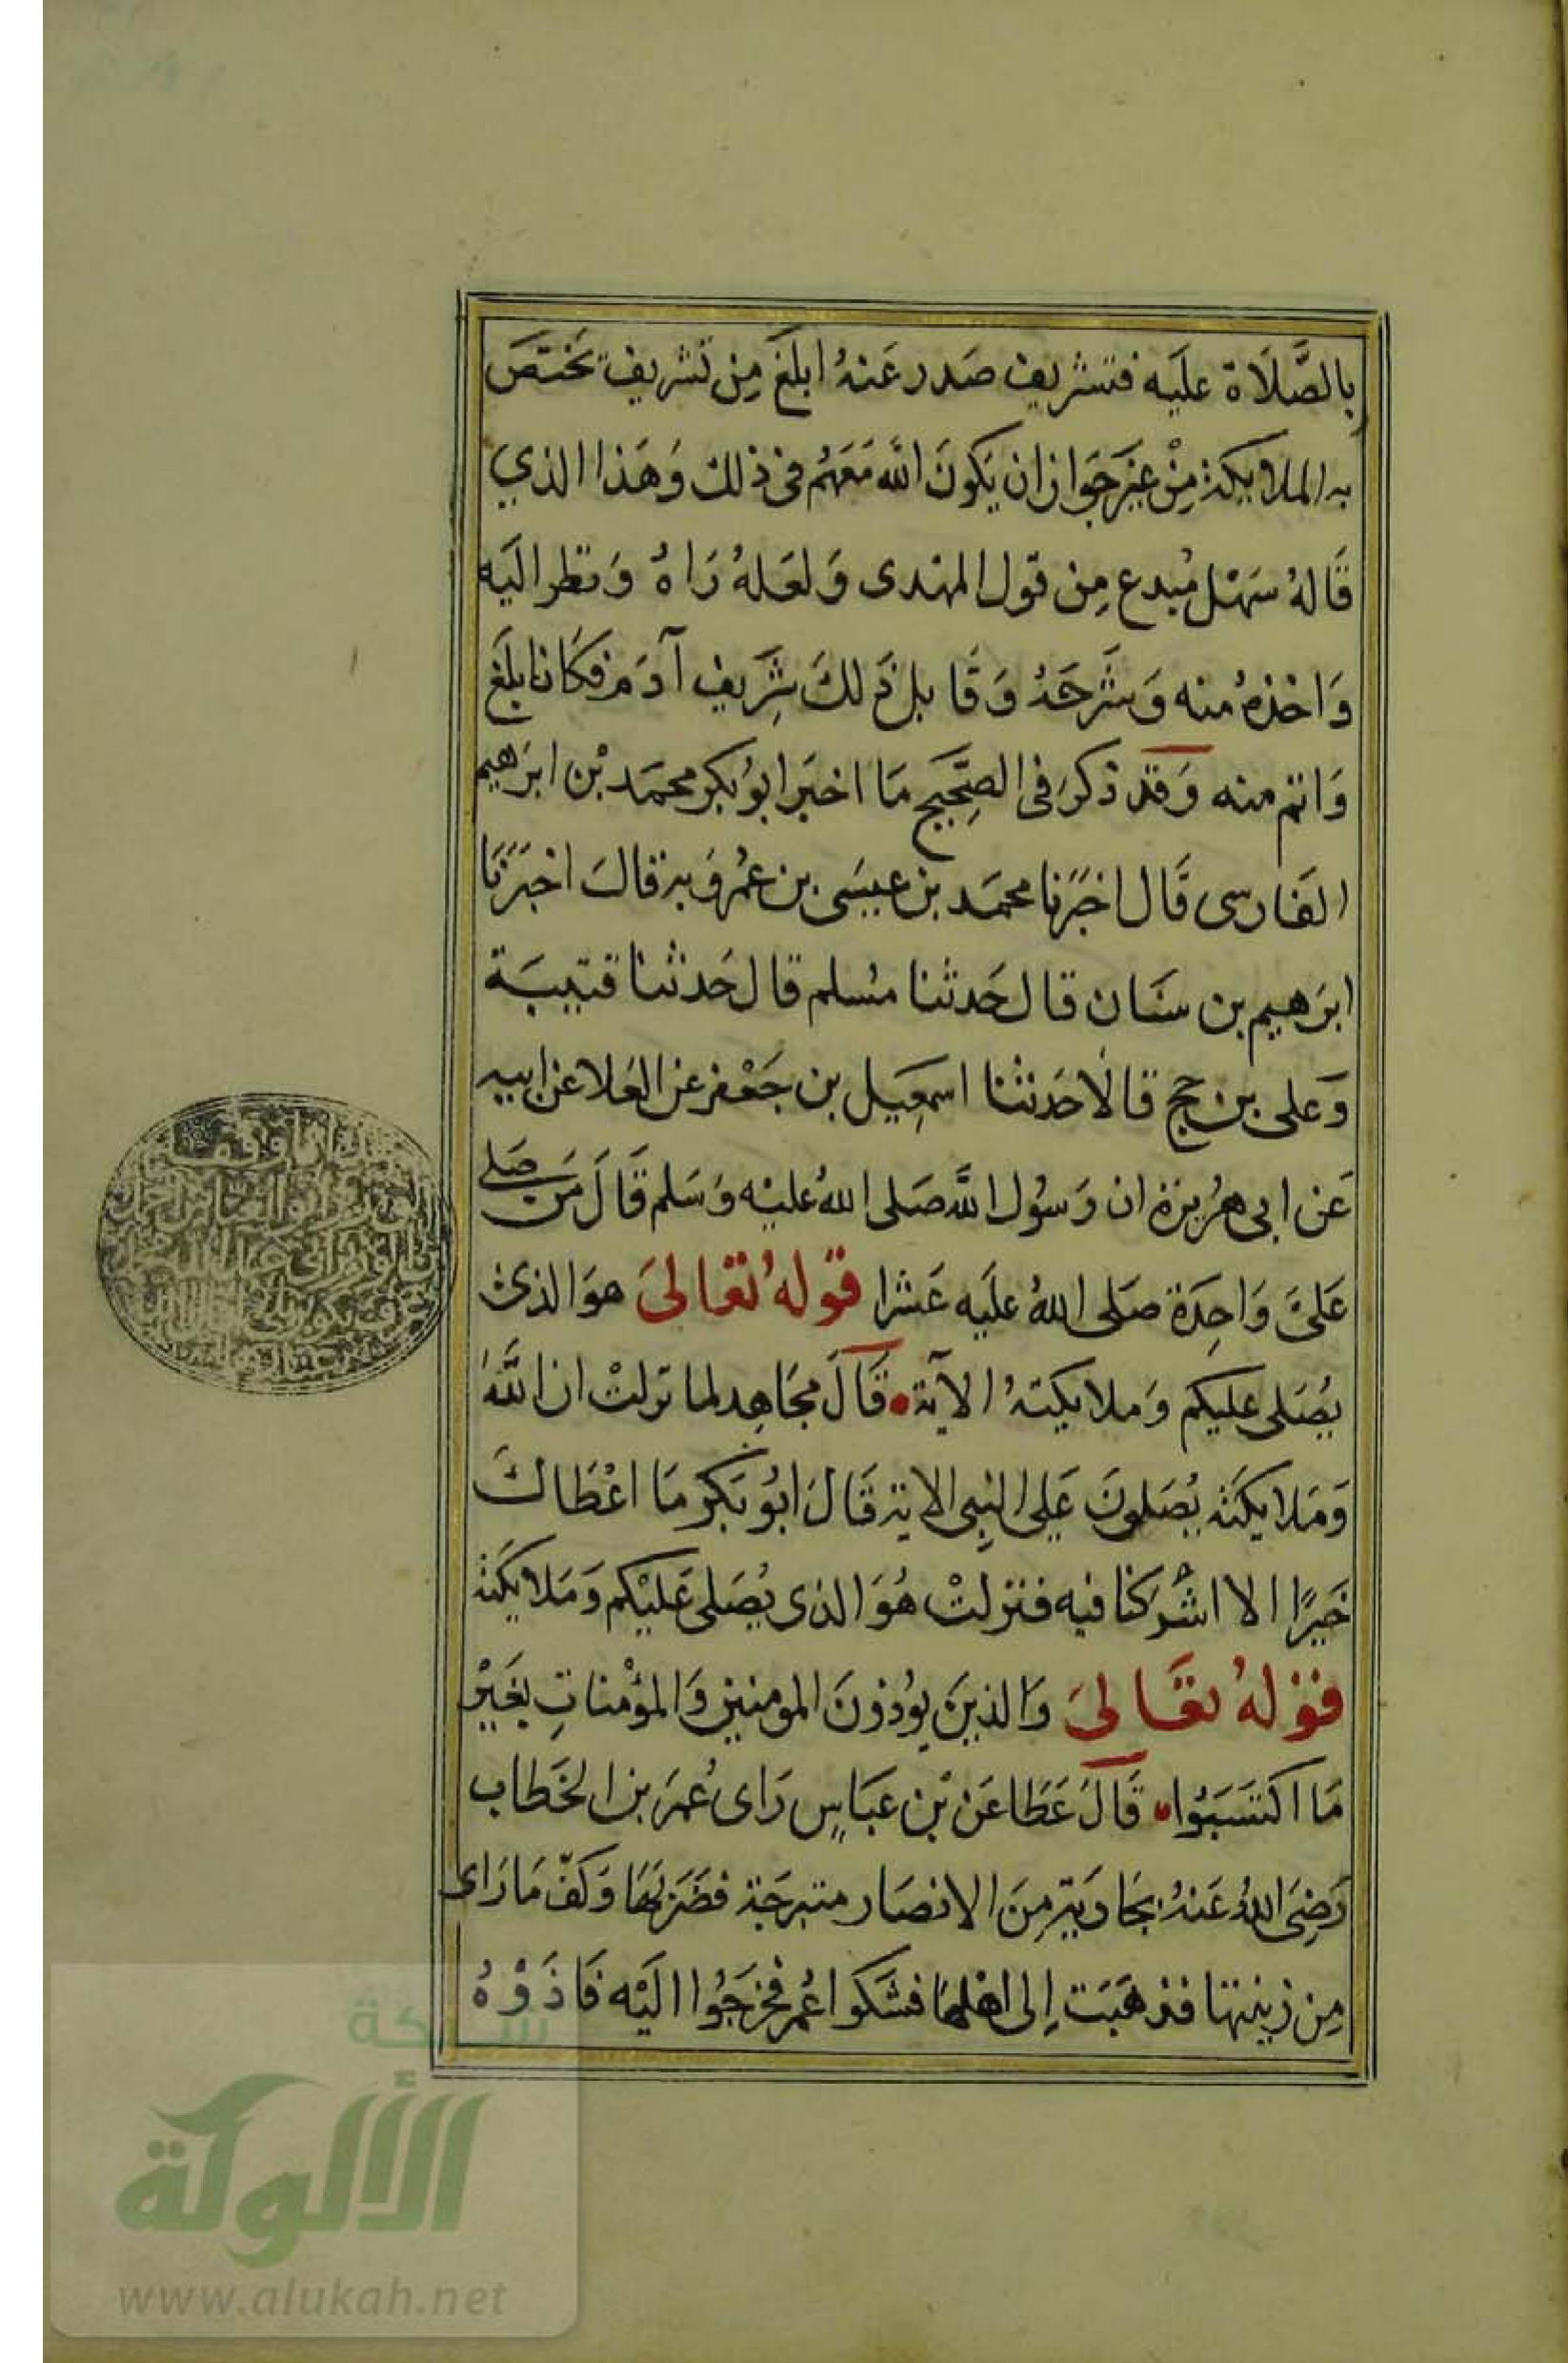 بالصَّلَاة عليَه فتشريف صَدر عَنهُ ابلغَ مِن تشريف تختصَ
به الملايكة مِنْ غيَر جَوازان يَكونَ الله مَعَهُم في ذلك وَهَذا الذي
قَالهُ سَهْل مُبدع مِن قول المهدى وَلعَلهُ رَاهُ وَنظر اليَه
وَاخذهُ منه وَشَرحَهُ وَقابل ذَلكَ بتشَريف آدَم فكَان ابلغَ
وَاتم منه وَقد ذكرَ فى الصِّحَيح مَا اخبَر ابوُ بكر محمَد بْن ابرَاهيم
الفَارسى قَال اخبَرَنا محمَد بن عيسَى بن عمُروَيه قالَ اخبَرَنَا
ابرَهيم بن سفيَان قال حَدثنا مسُلم قال حَدثنا قتيبَة
وَعلى بن حجر قالَا حَدثنا اسمعِيل بن جَعْفر عَن العَلا عن ابيه
عَن ابى هرُيرَة ان رَسوُل اللَّه صَلى اللهُ عليْه وَسَلم قَالَ مَن صَلى
عَلىَّ وَاحِدَة صَلى اللهُ عليَه عَشرا قولهُ تعَالىَ هوَ الذى
يُصَلى عليكم وَملايكتهُ الآيَة قَالَ مجَاهِد لما نزلتْ ان اللَّهَ
وَمَلايكَته يُصَلونَ عَلى النِبى الاية قَالَ ابوُ بَكر مَا اعْطَاكَ
خَيرًا الا اشْرَكنا فيه فنزلتْ هُوَ الذى يُصَلى عَليْكم وَمَلايكَته
قولهُ تعَالىَ وَالذينَ يوُذونَ المومنين وَالموْمناتِ بغَيْر
مَا اكتسَبَوُا قَالَ عَطَا عَن بْن عبَاسٍ رَاى عُمَر بن الخَطاب
رَضِىَ اللهُ عَنهُ جَارَية مِنَ الانصَار متبرجَة فضَرَبهَا وَكفّ مَا رَاى
مِن زينتها فذهَبَت اِلى اهْلهَا فشَكوا عُمر فخرَجوُا اليَه فَاذَوْهُ
شبكة
الألوكة
www.alukah.net